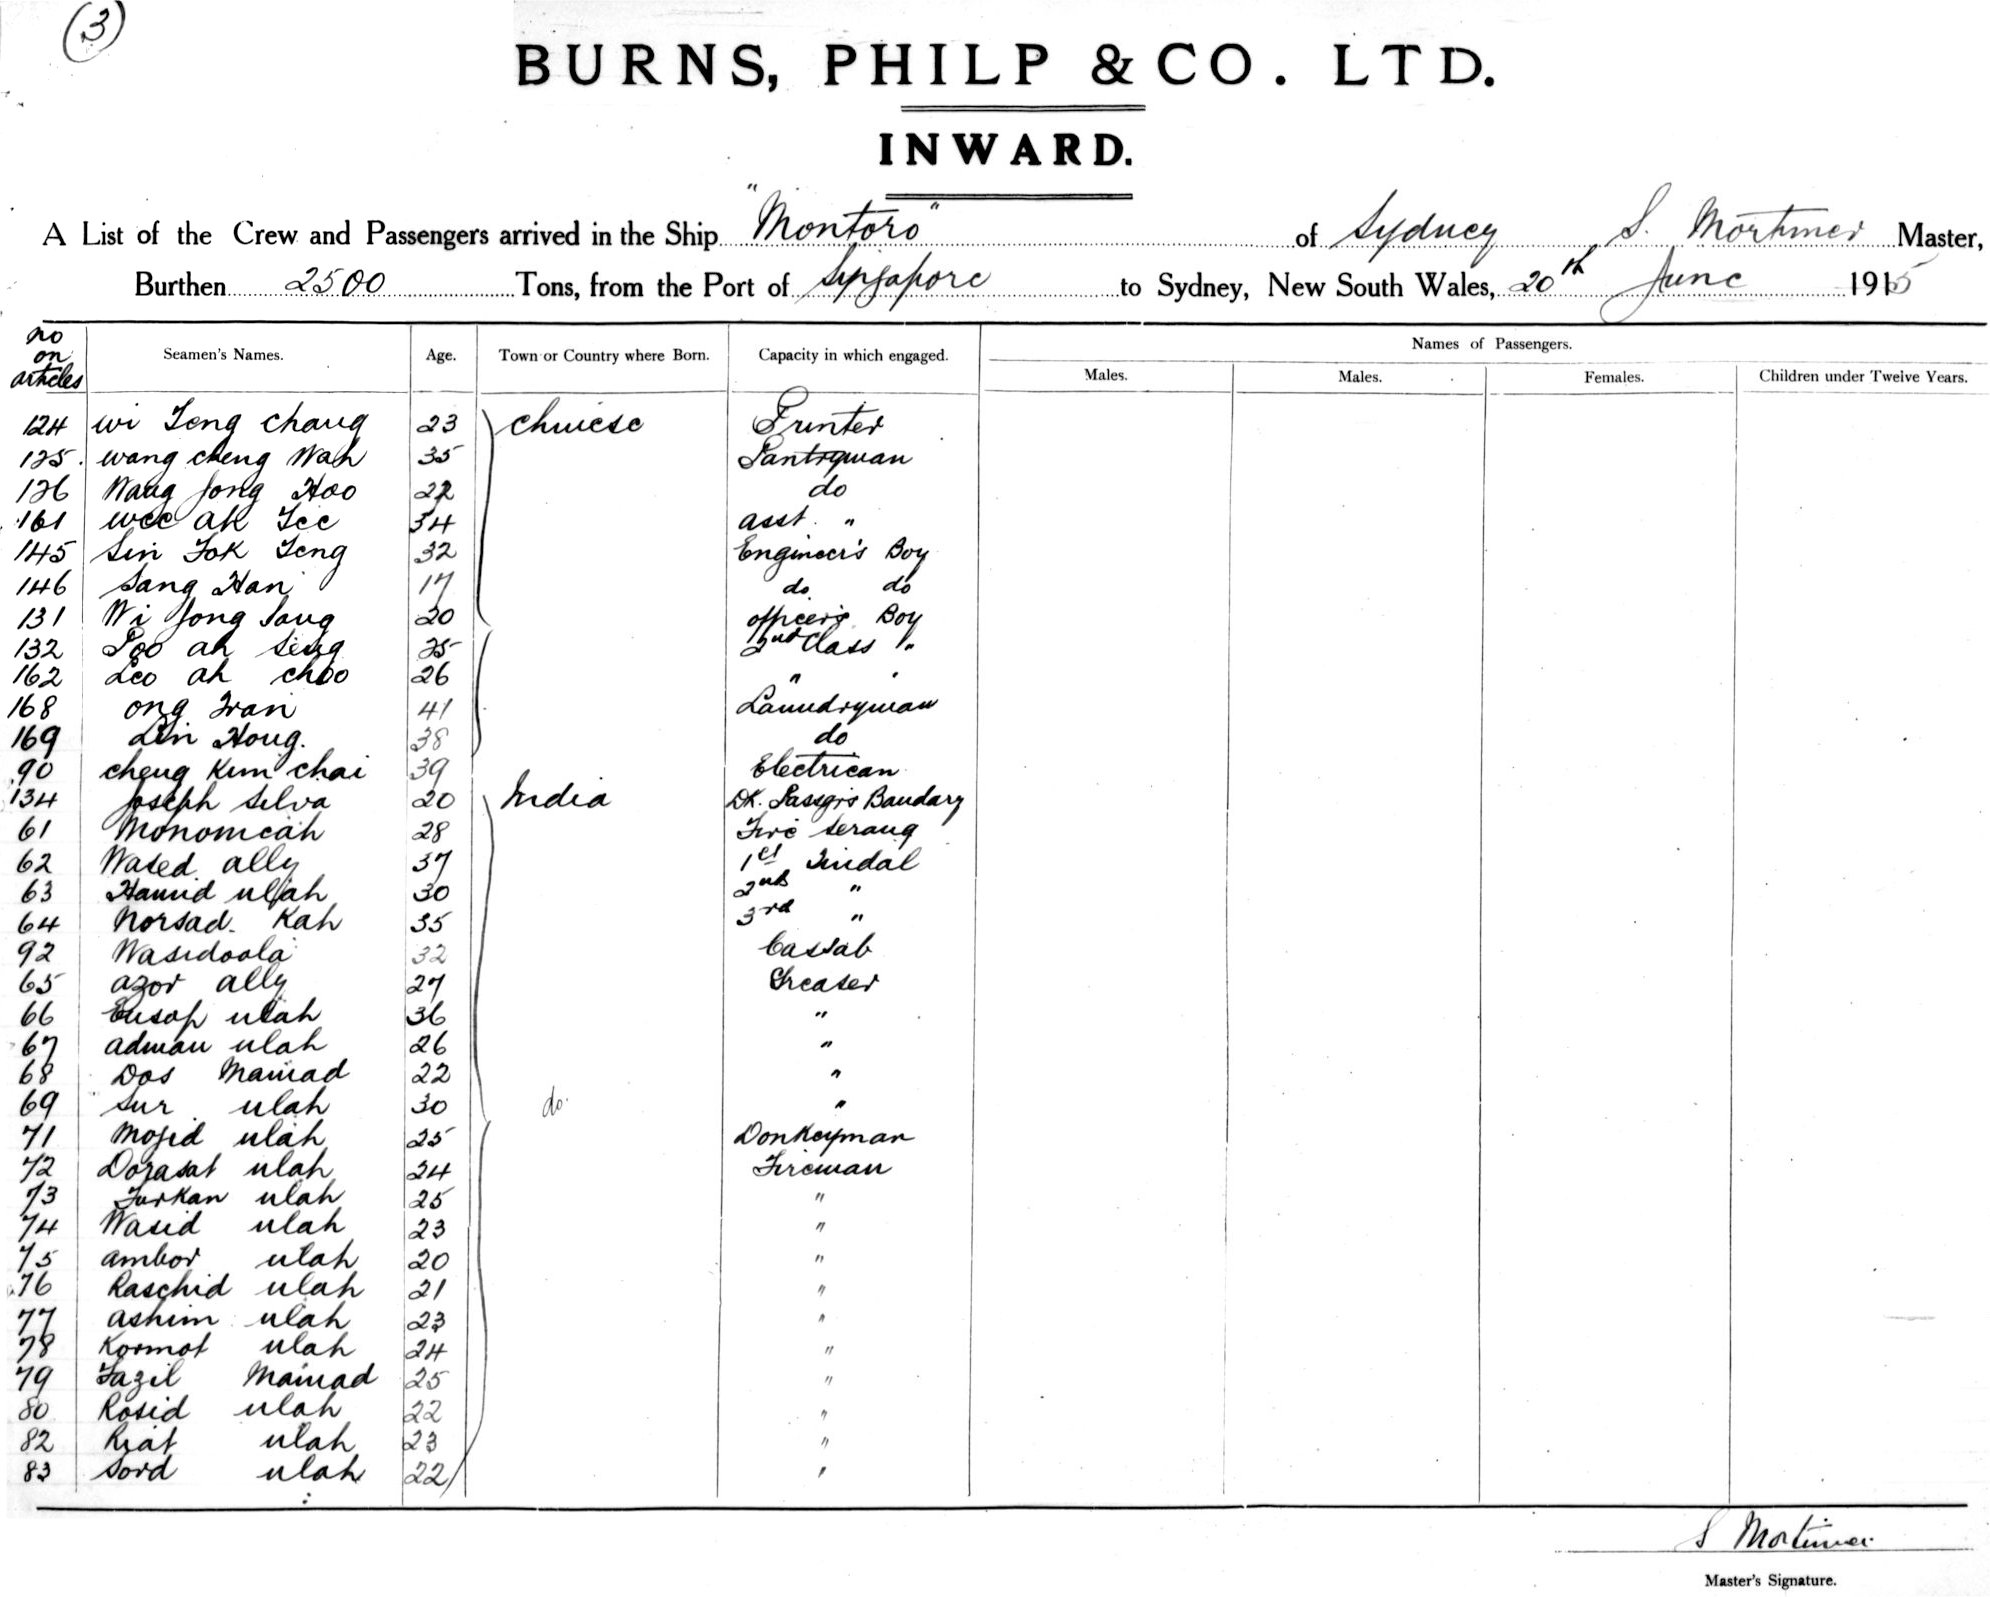 (3)
BURNS, PHILP & CO. LTD.
INWARD.
A List of the Crew and Passengers arrived in the Ship "Montoro" of Sydney S. Mortimer Master,
Burthen 2500 Tons, from the Port of Singapore to Sydney, New South Wales, 20th June 1915
no on articles Seamen's Names. Age. Town or Country where Born. Capacity in which engaged. Names of Passengers.
Males. Males. Females. Children under Twelve Years.
124 Wi Teng Chang 23 Chinese Printer
125 Wang Cheng Wah 35 Pantryman
126 Wang Jong Hoo 22 do
161 Wee Ah Tee 34 asst. "
145 Sin Fok Teng 32 Engineer's Boy
146 Sang Han 17 do do
131 Wi Jong Sang 20 officer's Boy
132 Poo ah Seng 25 2nd Class "
162 Leo ah choo 26 " "
168 Ong Wan 41 Laundryman
169 Lin Hong. 38 do
90 Cheng Kim Chai 39 Electrican
134 Joseph Silva 20 India Dk. Passgrs Bandary
61 Monomeah 28 Fire Serang
62 Wased ally 37 1st Tindal
63 Hamid ullah 30 2nd "
64 Norsad. Kah 35 3rd "
92 Wasidoola 32 Cassab
65 azor ally 27 Greaser
66 Eusop ulah 36 "
67 adman ulah 26 "
68 Dos Mamad 22 "
69 Sur ulah 30 do. "
71 Mojid ulah 25 Donkeyman
72 Dorasat ulah 24 Fireman
73 Furkan ulah 25 "
74 Wasid ulah 23 "
75 ambor ulah 20 "
76 Raschid ulah 21 "
77 ashim ulah 23 "
78 Kormot ulah 24 "
79 Fazil Mamad 25 "
80 Rosid ulah 22 "
82 Riat ulah 23 "
83 Sord ulah 22 "
S Mortimer
Master's Signature.